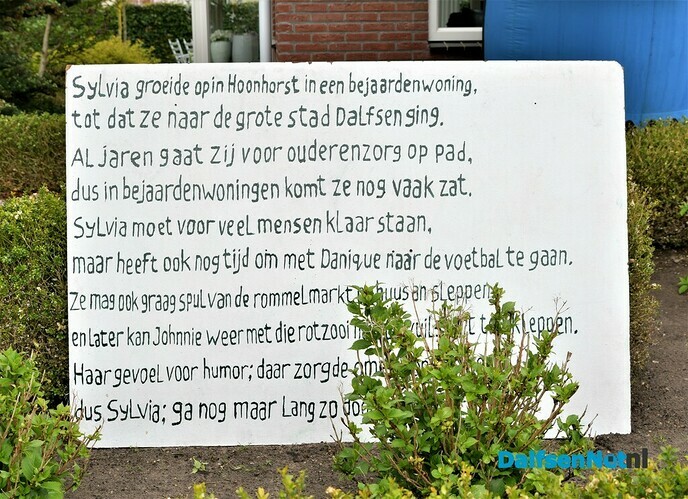 Sylvia groeide op in Hoonhorst in een bejaardenwoning,
tot dat ze naar de grote stad Dalfsen ging.
Al jaren gaat zij voor ouderenzorg op pad,
dus in bejaardenwoningen komt ze nog vaak zat.
Sylvia moet voor veel mensen klaar staan,
maar heeft ook nog tijd om met Danique naar de voetbal te gaan.
Ze mag ook graag spul van de rommelmarkt an sleppen
en later kan Johnnie weer met die rotzooi kleppen.
Haar gevoel voor humor; daar zorgde
dus Sylvia; ga nog maar lang zo
DalfsenNet.nl